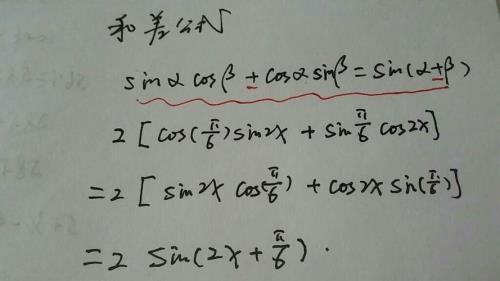 和差公式
sinα cosβ + cosα sinβ = sin(α+β)
2[cos(π/6)sin2x + sin π/6 cos2x]
=2[sin2x cos(π/6) + cos2x sin(π/6)]
=2 sin(2x+π/6).